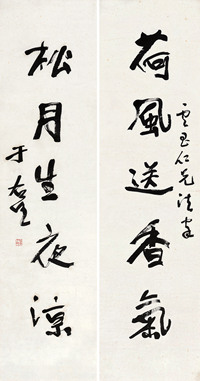 荷風送香氣
雲玉仁兄法家
松月生夜涼
于右任